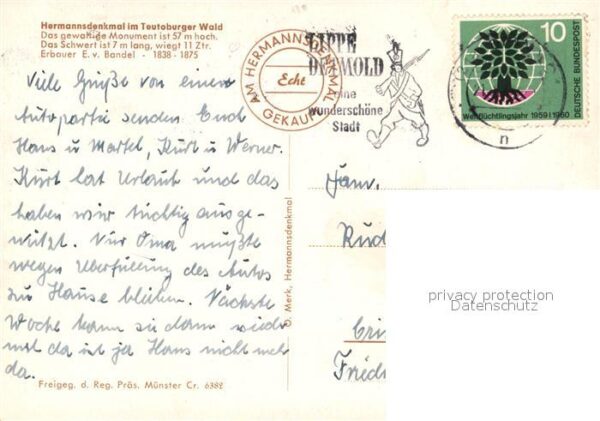 Hermannsdenkmal im Teutoburger Wald
Das gewaltige Monument ist 57 m hoch.
Das Schwert ist 7 m lang, wiegt 11 Ztr.
Erbauer E. v. Bandel - 1838 - 1875
AM HERMANNSDENKMAL
Echt
GEKAUFT
LIPPE
DETMOLD
eine
wunderschöne
Stadt
10
DEUTSCHE BUNDESPOST
Weltflüchtlingsjahr 1959/1960
n
Viele Grüße von einer
Autopartie senden Euch
Hans u Martel, Kurt u Werner.
Kurt hat Urlaub und das
haben wir tüchtig ausge-
nützt. Nur Oma mußte
wegen Überfüllung des Autos
zu Hause bleiben. Nächste
Woche kann sie dann wieder
mit da ist ja Hans nicht mehr
da.
Fam.
Rud
Fried
O. Merk, Hermannsdenkmal
privacy protection
Datenschutz
Freigeg. d. Reg. Präs. Münster Cr. 6382